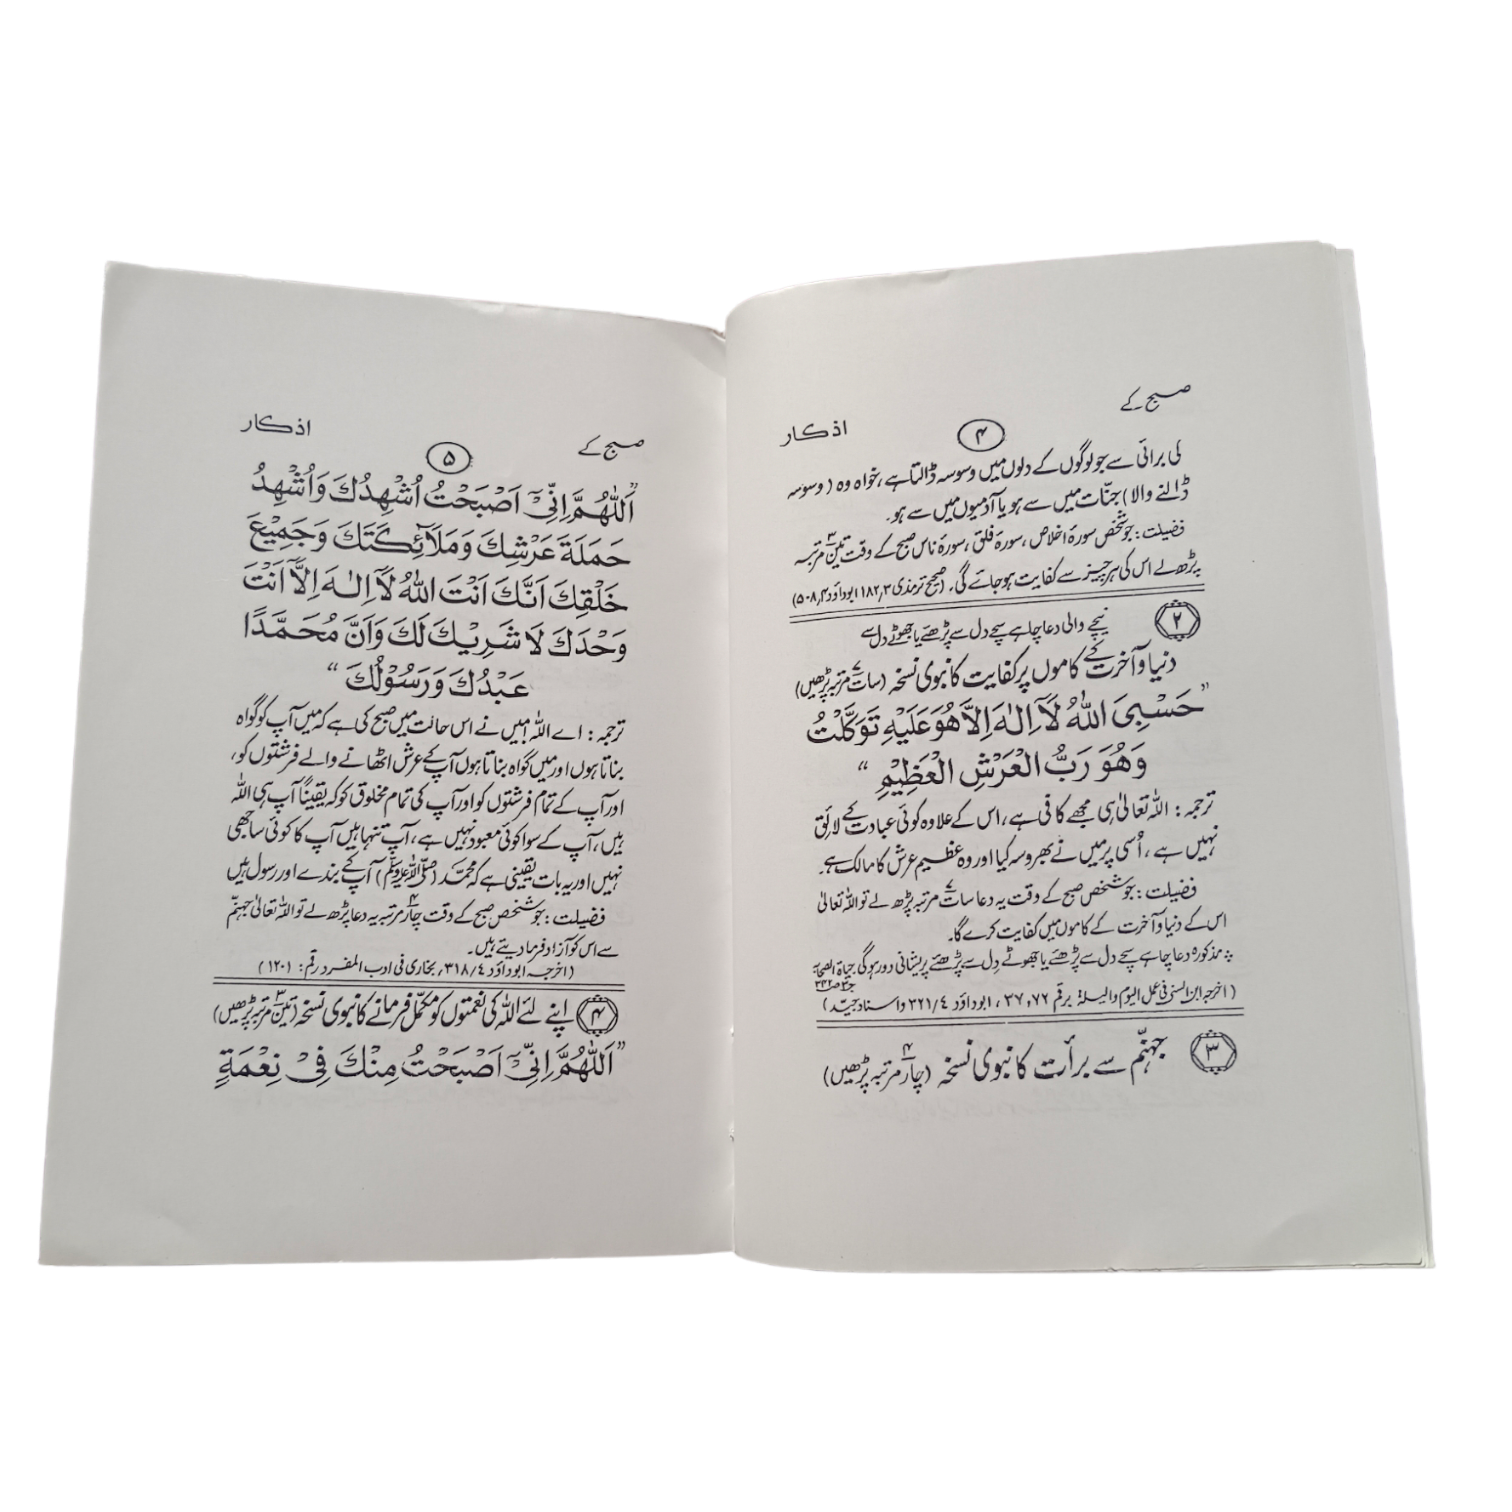 صبح کے ۴ اذکار
لی برائی سے جو لوگوں کے دلوں میں وسوسہ ڈالتا ہے، خواہ وہ (وسوسہ
ڈالنے والا) جنّات میں سے ہو یا آدمیوں میں سے ہو۔
فضیلت: جو شخص سورۂ اخلاص، سورۂ فلق، سورۂ ناس صبح کے وقت تین ۳ مرتبہ
پڑھ لے اس کی ہر چیز سے کفایت ہو جائے گی۔ (صحیح ترمذی ۱۸۲٫۳ ابوداؤد ۵۰۸٫۴)
۲ نیچے والی دعا چاہے سچے دل سے پڑھے یا جھوٹے دل سے
دنیا و آخرت کے کاموں پر کفایت کا نبوی نسخہ (سات ۷ مرتبہ پڑھیں)
”حَسْبِیَ اللّٰهُ لَآ اِلٰهَ اِلَّا هُوَ عَلَیْهِ تَوَکَّلْتُ
وَهُوَ رَبُّ الْعَرْشِ الْعَظِیْمِ“
ترجمہ: اللہ تعالیٰ ہی مجھے کافی ہے، اس کے علاوہ کوئی عبادت کے لائق
نہیں ہے، اُسی پر میں نے بھروسہ کیا اور وہ عظیم عرش کا مالک ہے۔
فضیلت: جو شخص صبح کے وقت یہ دعا سات ۷ مرتبہ پڑھ لے تو اللہ تعالیٰ
اس کے دنیا و آخرت کے کاموں میں کفایت کرے گا۔
مذکورہ دعا چاہے سچے دل سے پڑھے یا جھوٹے دل سے پڑھے پریشانی دور ہوگی حیاۃ الصحابہ
(اخرجہ ابن السنی فی عمل الیوم واللیلۃ برقم ۳۷٫۷۲، ابوداؤد ۳۲۱/۴ واسنادہ جیّد)
۳ جہنّم سے برأت کا نبوی نسخہ (چار ۴ مرتبہ پڑھیں)
صبح کے ۵ اذکار
”اَللّٰهُمَّ اِنِّیْٓ اَصْبَحْتُ اُشْهِدُكَ وَاُشْهِدُ
حَمَلَةَ عَرْشِكَ وَمَلَآئِكَتَكَ وَجَمِیْعَ
خَلْقِكَ اَنَّكَ اَنْتَ اللّٰهُ لَآ اِلٰهَ اِلَّآ اَنْتَ
وَحْدَكَ لَا شَرِیْكَ لَكَ وَاَنَّ مُحَمَّدًا
عَبْدُكَ وَرَسُوْلُكَ“
ترجمہ: اے اللہ! میں نے اس حالت میں صبح کی ہے کہ میں آپ کو گواہ
بناتا ہوں اور میں گواہ بناتا ہوں آپ کے عرش اٹھانے والے فرشتوں کو،
اور آپ کے تمام فرشتوں کو اور آپ کی تمام مخلوق کو کہ یقیناً آپ ہی اللہ
ہیں، آپ کے سوا کوئی معبود نہیں ہے، آپ تنہا ہیں آپ کا کوئی ساجھی
نہیں اور یہ بات یقینی ہے کہ محمد (صلی اللہ علیہ وسلم) آپ کے بندے اور رسول ہیں
فضیلت: جو شخص صبح کے وقت چار ۴ مرتبہ یہ دعا پڑھ لے تو اللہ تعالیٰ جہنّم
سے اس کو آزاد فرما دیتے ہیں۔
(اخرجہ ابوداؤد ۳۱۸/۴، بخاری فی ادب المفرد رقم: ۱۲۰۱)
۴ اپنے لئے اللہ کی نعمتوں کو مکمّل فرمانے کا نبوی نسخہ (تین ۳ مرتبہ پڑھیں)
”اَللّٰهُمَّ اِنِّیْٓ اَصْبَحْتُ مِنْكَ فِیْ نِعْمَةٍ